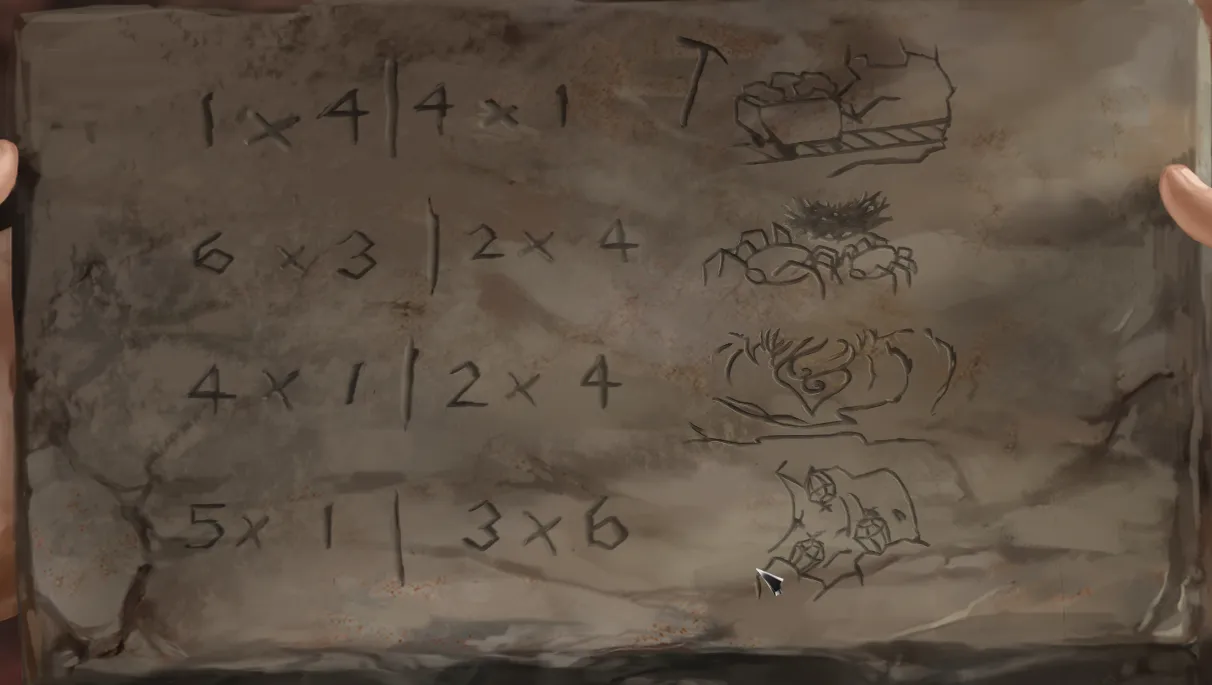 1 x 4 | 4 x 1
6 x 3 | 2 x 4
4 x 1 | 2 x 4
5 x 1 | 3 x 6